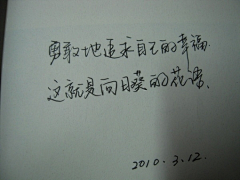 勇敢地追求自己的幸福
这就是向日葵的花语.
2010.3.12.